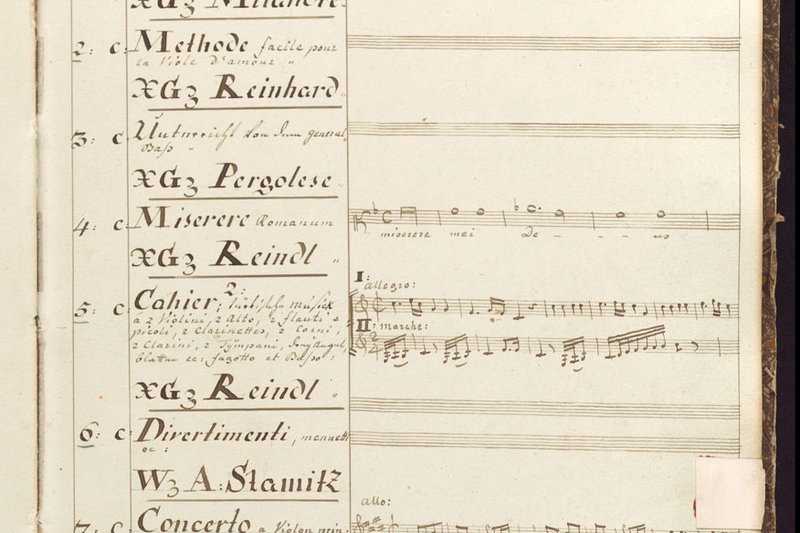 XG3 Milandre.
2: C: Methode facile pour
la Viole d'amour "
XG3 Reinhard.
3: C. Unterricht von dem general
Baß "
XG3 Pergolese.
4: C. Miserere Romanum
miserere mei De - - - us
XG3 Reindl "
I:
allegro:
5: C. Cahier, 2: türkische Musick
a 2 Violini, 2 Alto, 2 flauti 2
picoli, 2 Clarinettes, 2 Corni,
II: marche:
2 Clarini, 2 Tÿmpani,
blatten ec: fagotto et Baßo:
XG3 Reindl "
6: C. Divertimenti, menuetti
ec:
W3 A: Stamitz
allo:
7: C. Concerto a Violon prin: